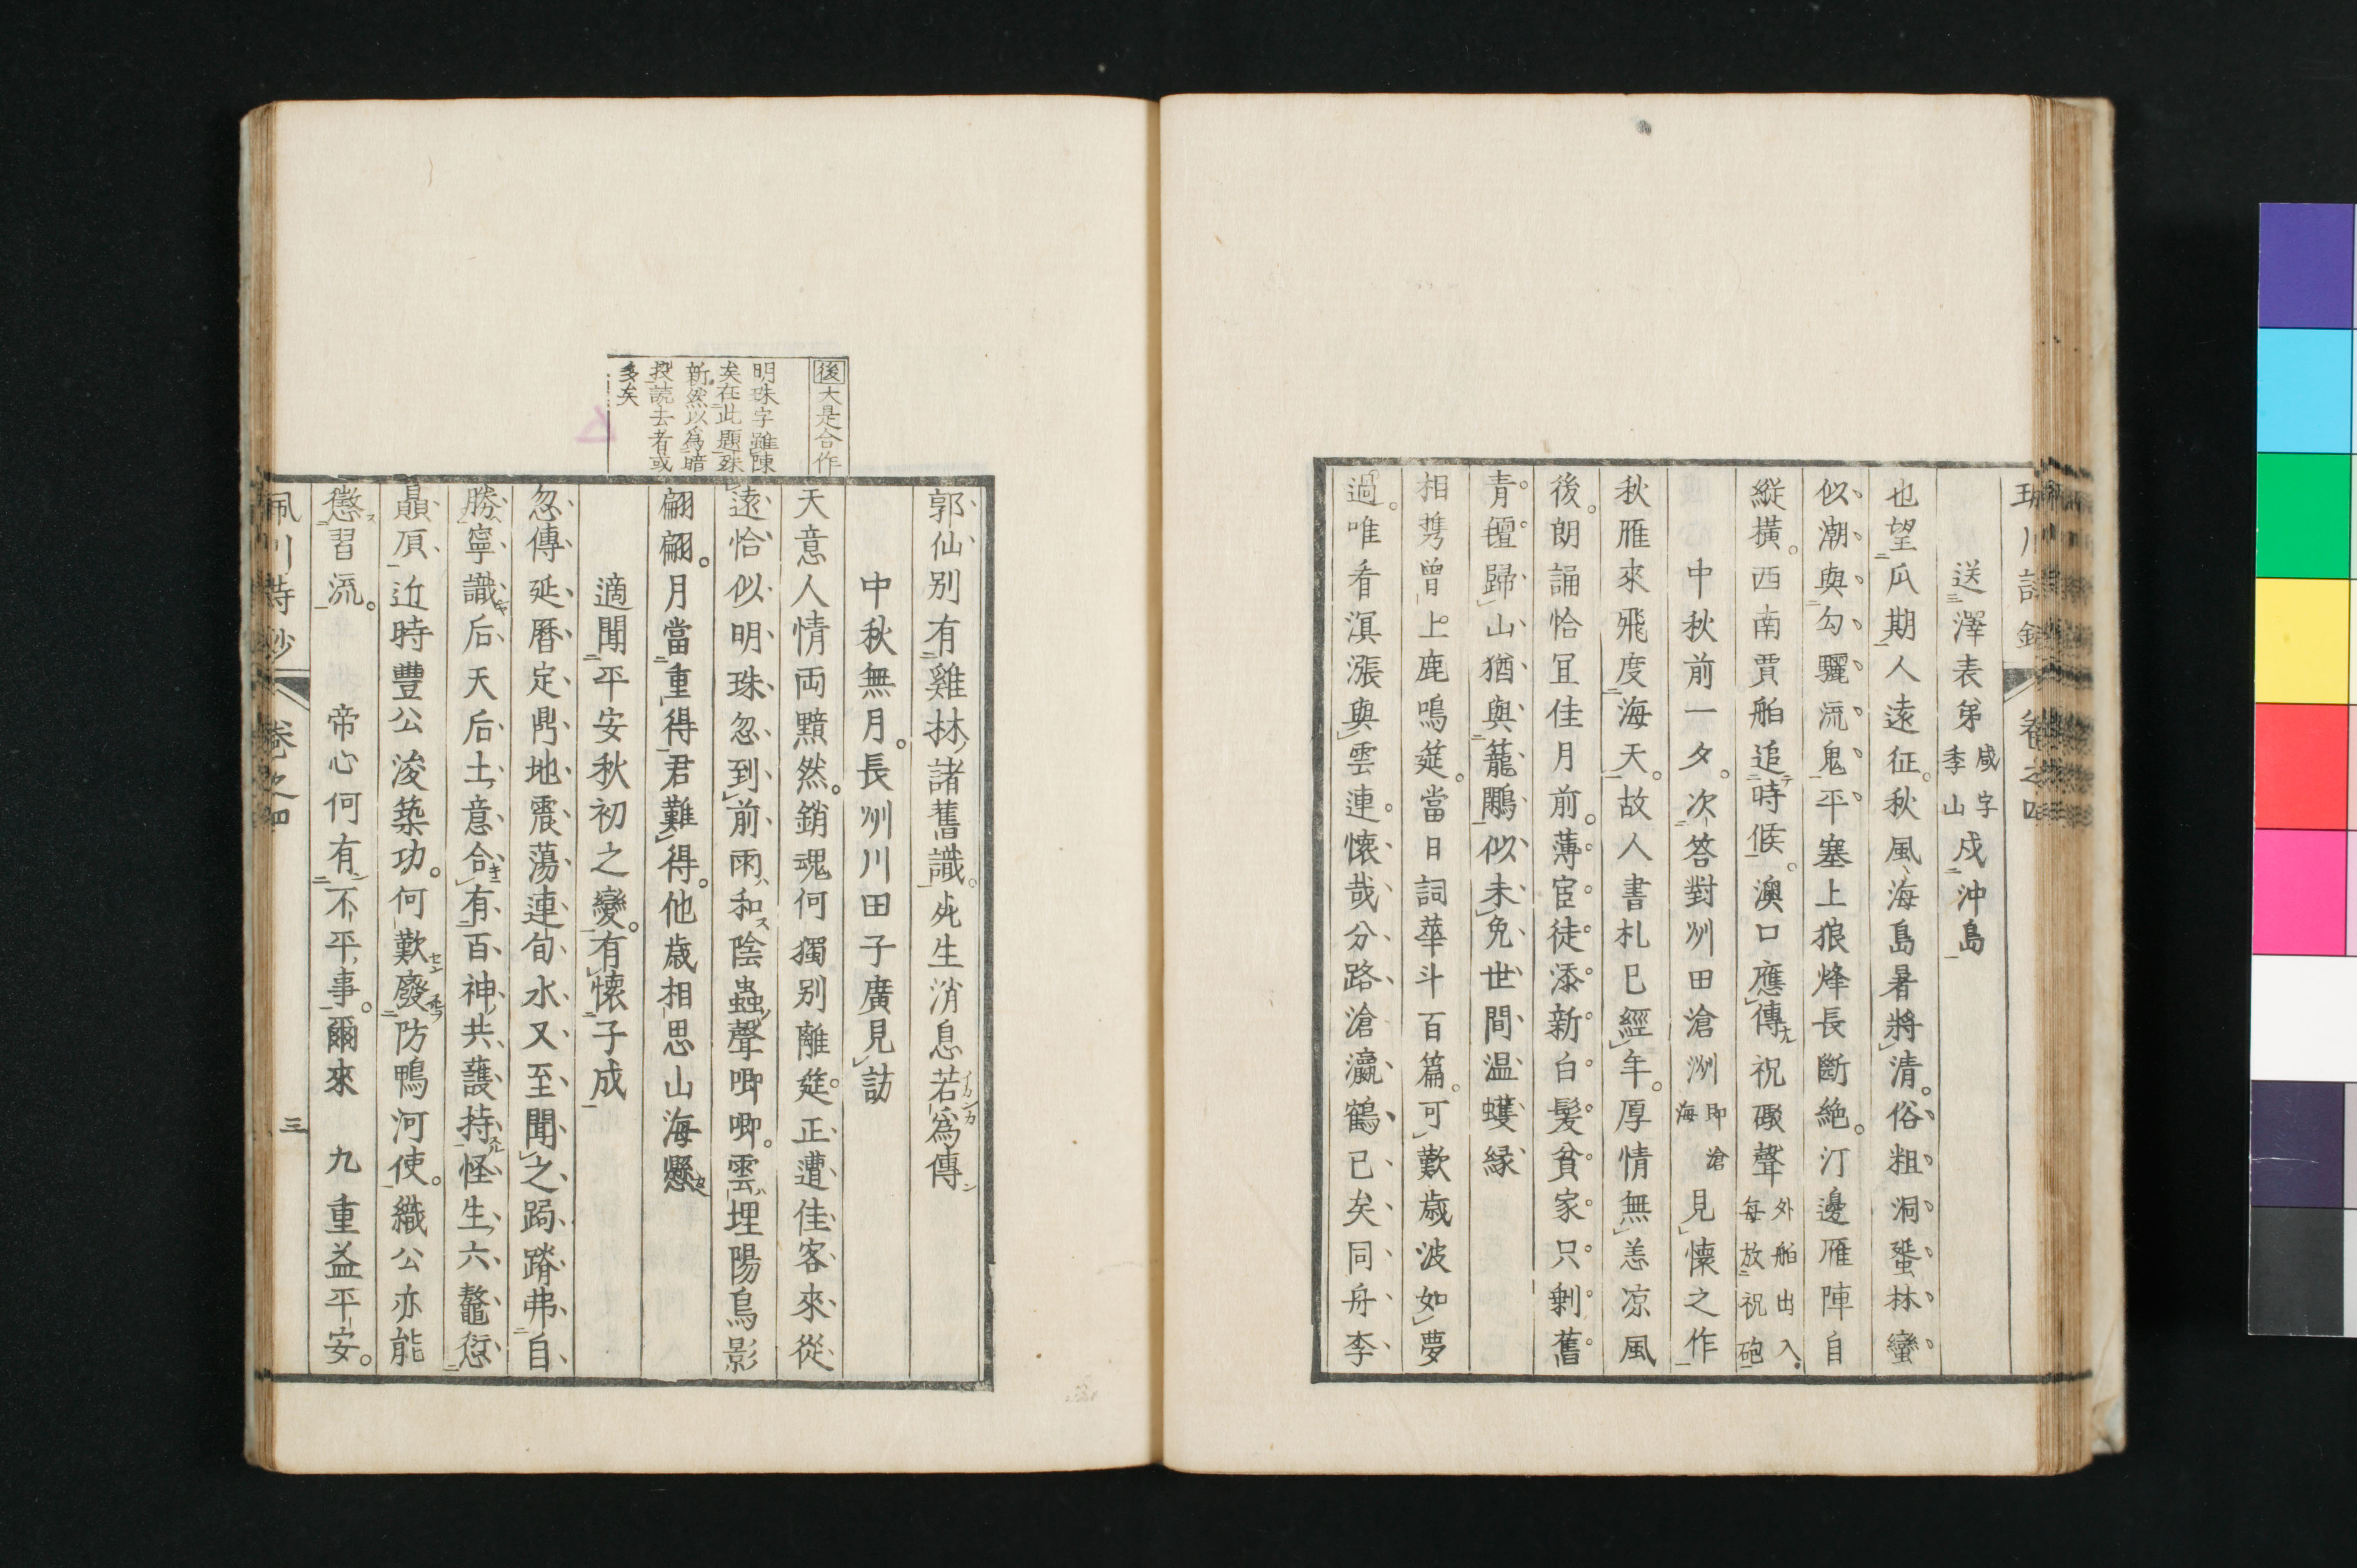 送澤表弟咸字李山戍沖島
也望瓜期人遠征。秋風海島暑將清。俗粗洞蜑林蠻
似潮與勾驪流鬼平。塞上狼烽長斷絶。汀邊雁陣自
縱橫。西南賈舶追時候。澳口應傳祝砲聲外舶出入。每放祝砲
中秋前一夕。次答對州田滄洲即滄海見懷之作
秋雁來飛度海天。故人書札已經年。厚情無恙凉風
後。朗誦恰宜佳月前。薄宦徒添新白髮。貧家只剩舊
青氈。歸山猶與籠鵰似。未免世間温蠖緣
相携曾上鹿鳴筵。當日詞華斗百篇。可歎歲波如夢
過。唯看溟漲與雲連。懷哉分路滄瀛鶴。已矣同舟李
郭仙。別有雞林諸舊識。死生消息若爲傳
中秋無月。長州川田子廣見訪
天意人情両黯然。銷魂何獨別離筵。正遭佳客來從
遠。恰似明珠忽到前。雨和陰蟲聲唧唧。雲埋陽烏影
翩翩。月當重得君難得。他歲相思山海懸
適聞平安秋初之變。有懷子成
忽傳延曆定鼎地。震蕩連旬水又至。聞之跼蹐弗自
勝。寧識后天后土意。合有百神共護持。怪生六鼇愆
贔屓。近時豐公浚築功。何歎廢防鴨河使。織公亦能
懲習流。帝心何有不平事。爾來九重益平安。
後大是合作
明珠字雖陳
矣在此題殊
新然以爲暗
投読去者或
多矣
佩川詩鈔 卷之四 三